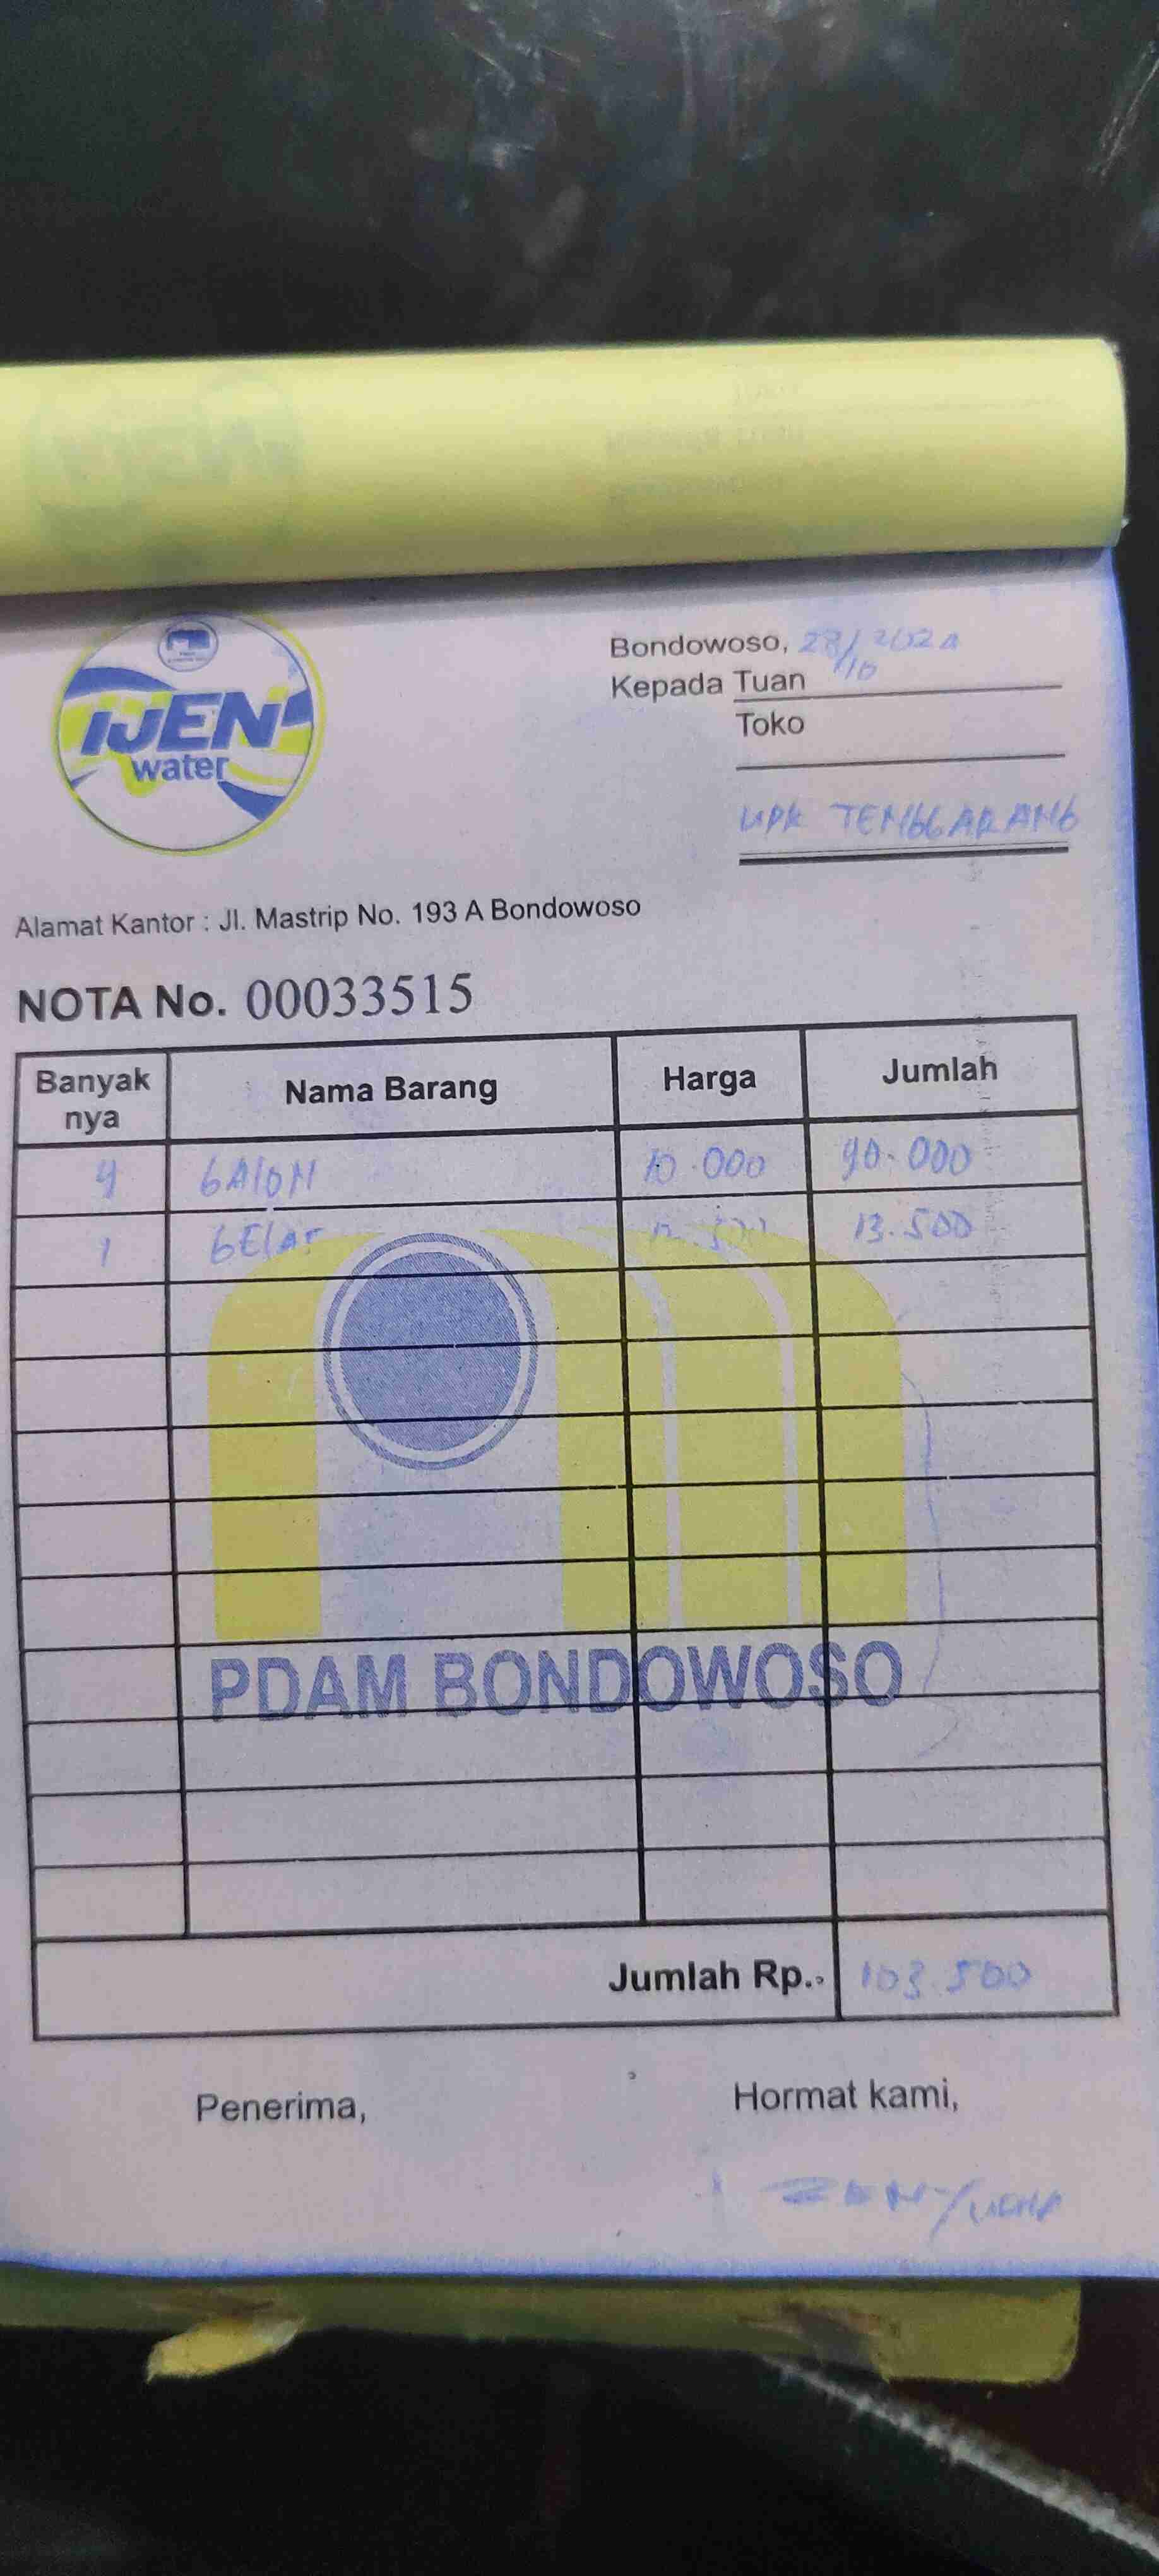 IJEN
water
Bondowoso, 28/10 2024
Kepada Tuan
Toko
UPK TENGGARANG
Alamat Kantor : Jl. Mastrip No. 193 A Bondowoso
NOTA No. 00033515
Banyak nya Nama Barang Harga Jumlah
9 GALON 10.000 90.000
1 GELAS 13.500
PDAM BONDOWOSO
Jumlah Rp. 103.500
Penerima, Hormat kami,